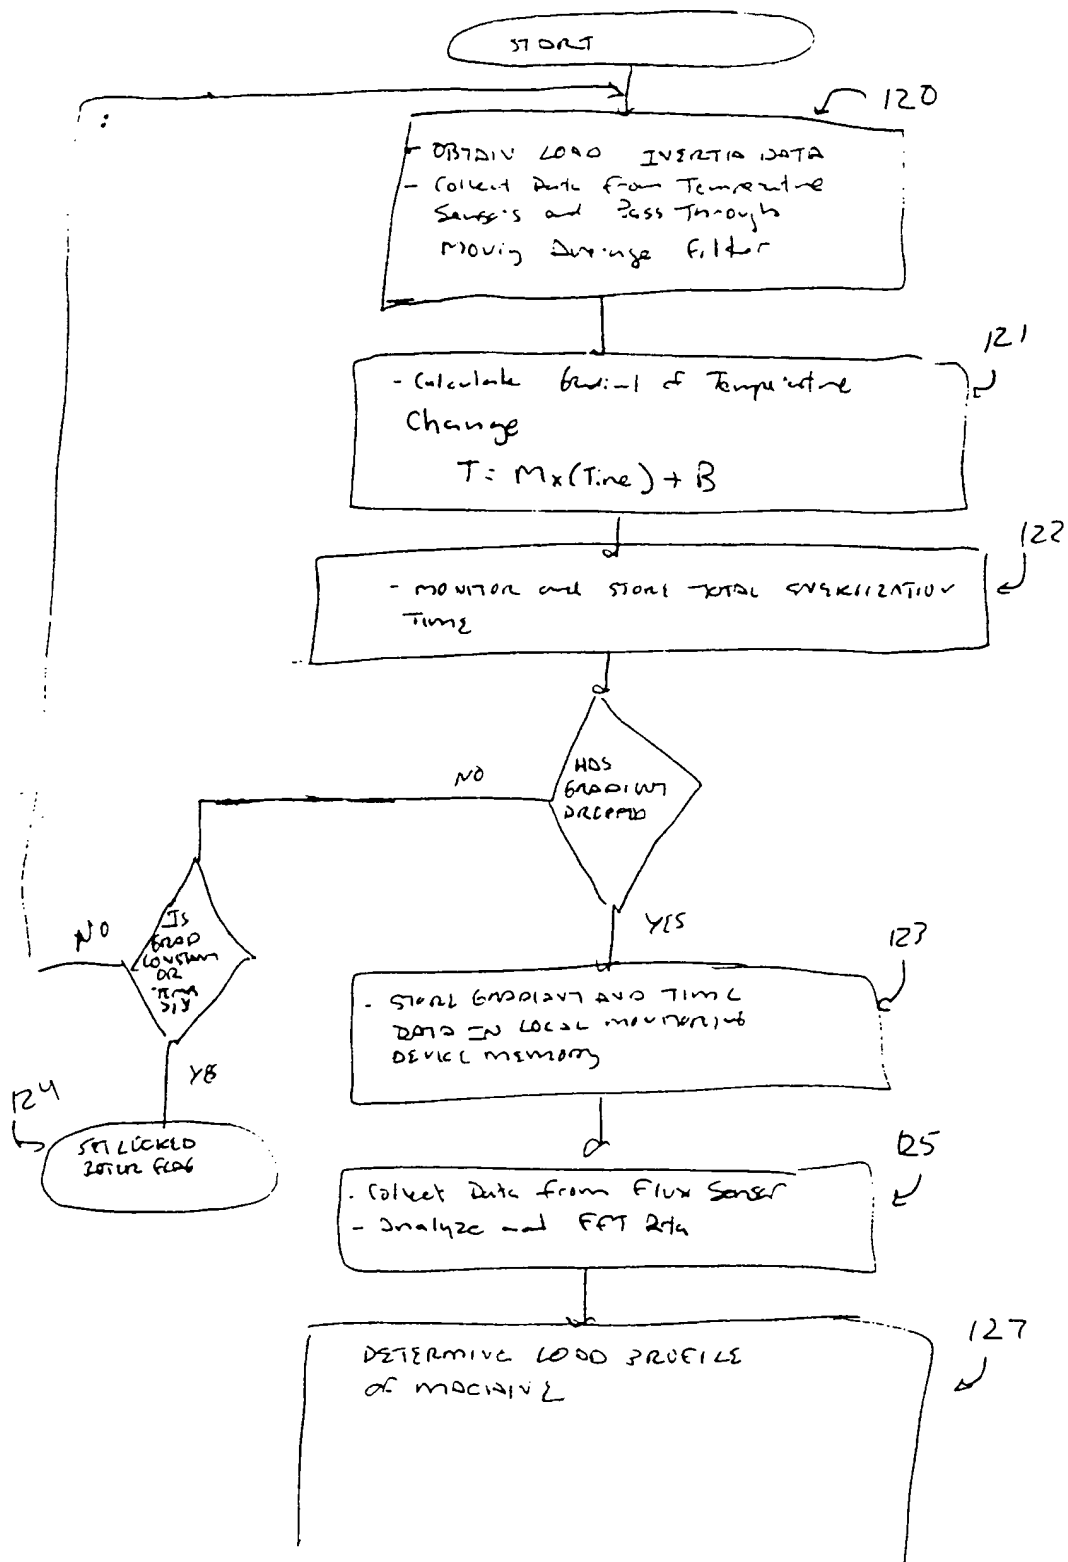 START
120
- OBTAIN LOAD INERTIA DATA
- Collect Data from Temperature
Sensors and Pass Through
Moving Average Filter
121
- Calculate Gradient of Temperature
Change
T = Mx(Time) + B
122
- MONITOR and STORE TOTAL ENERGIZATION
TIME
HAS
GRADIENT
DROPPED
NO
YES
IS
GRAD
CONSTANT
OR
NO
YES
124
SET LOCKED
ROTOR FLAG
123
- STORE GRADIENT AND TIME
DATA IN LOCAL MONITORING
DEVICE MEMORY
125
- Collect Data from Flux Sensor
- Analyze and FFT Data
127
DETERMINE LOAD PROFILE
of MACHINE